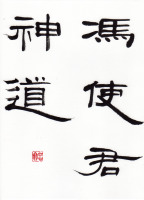 馮使君
神道